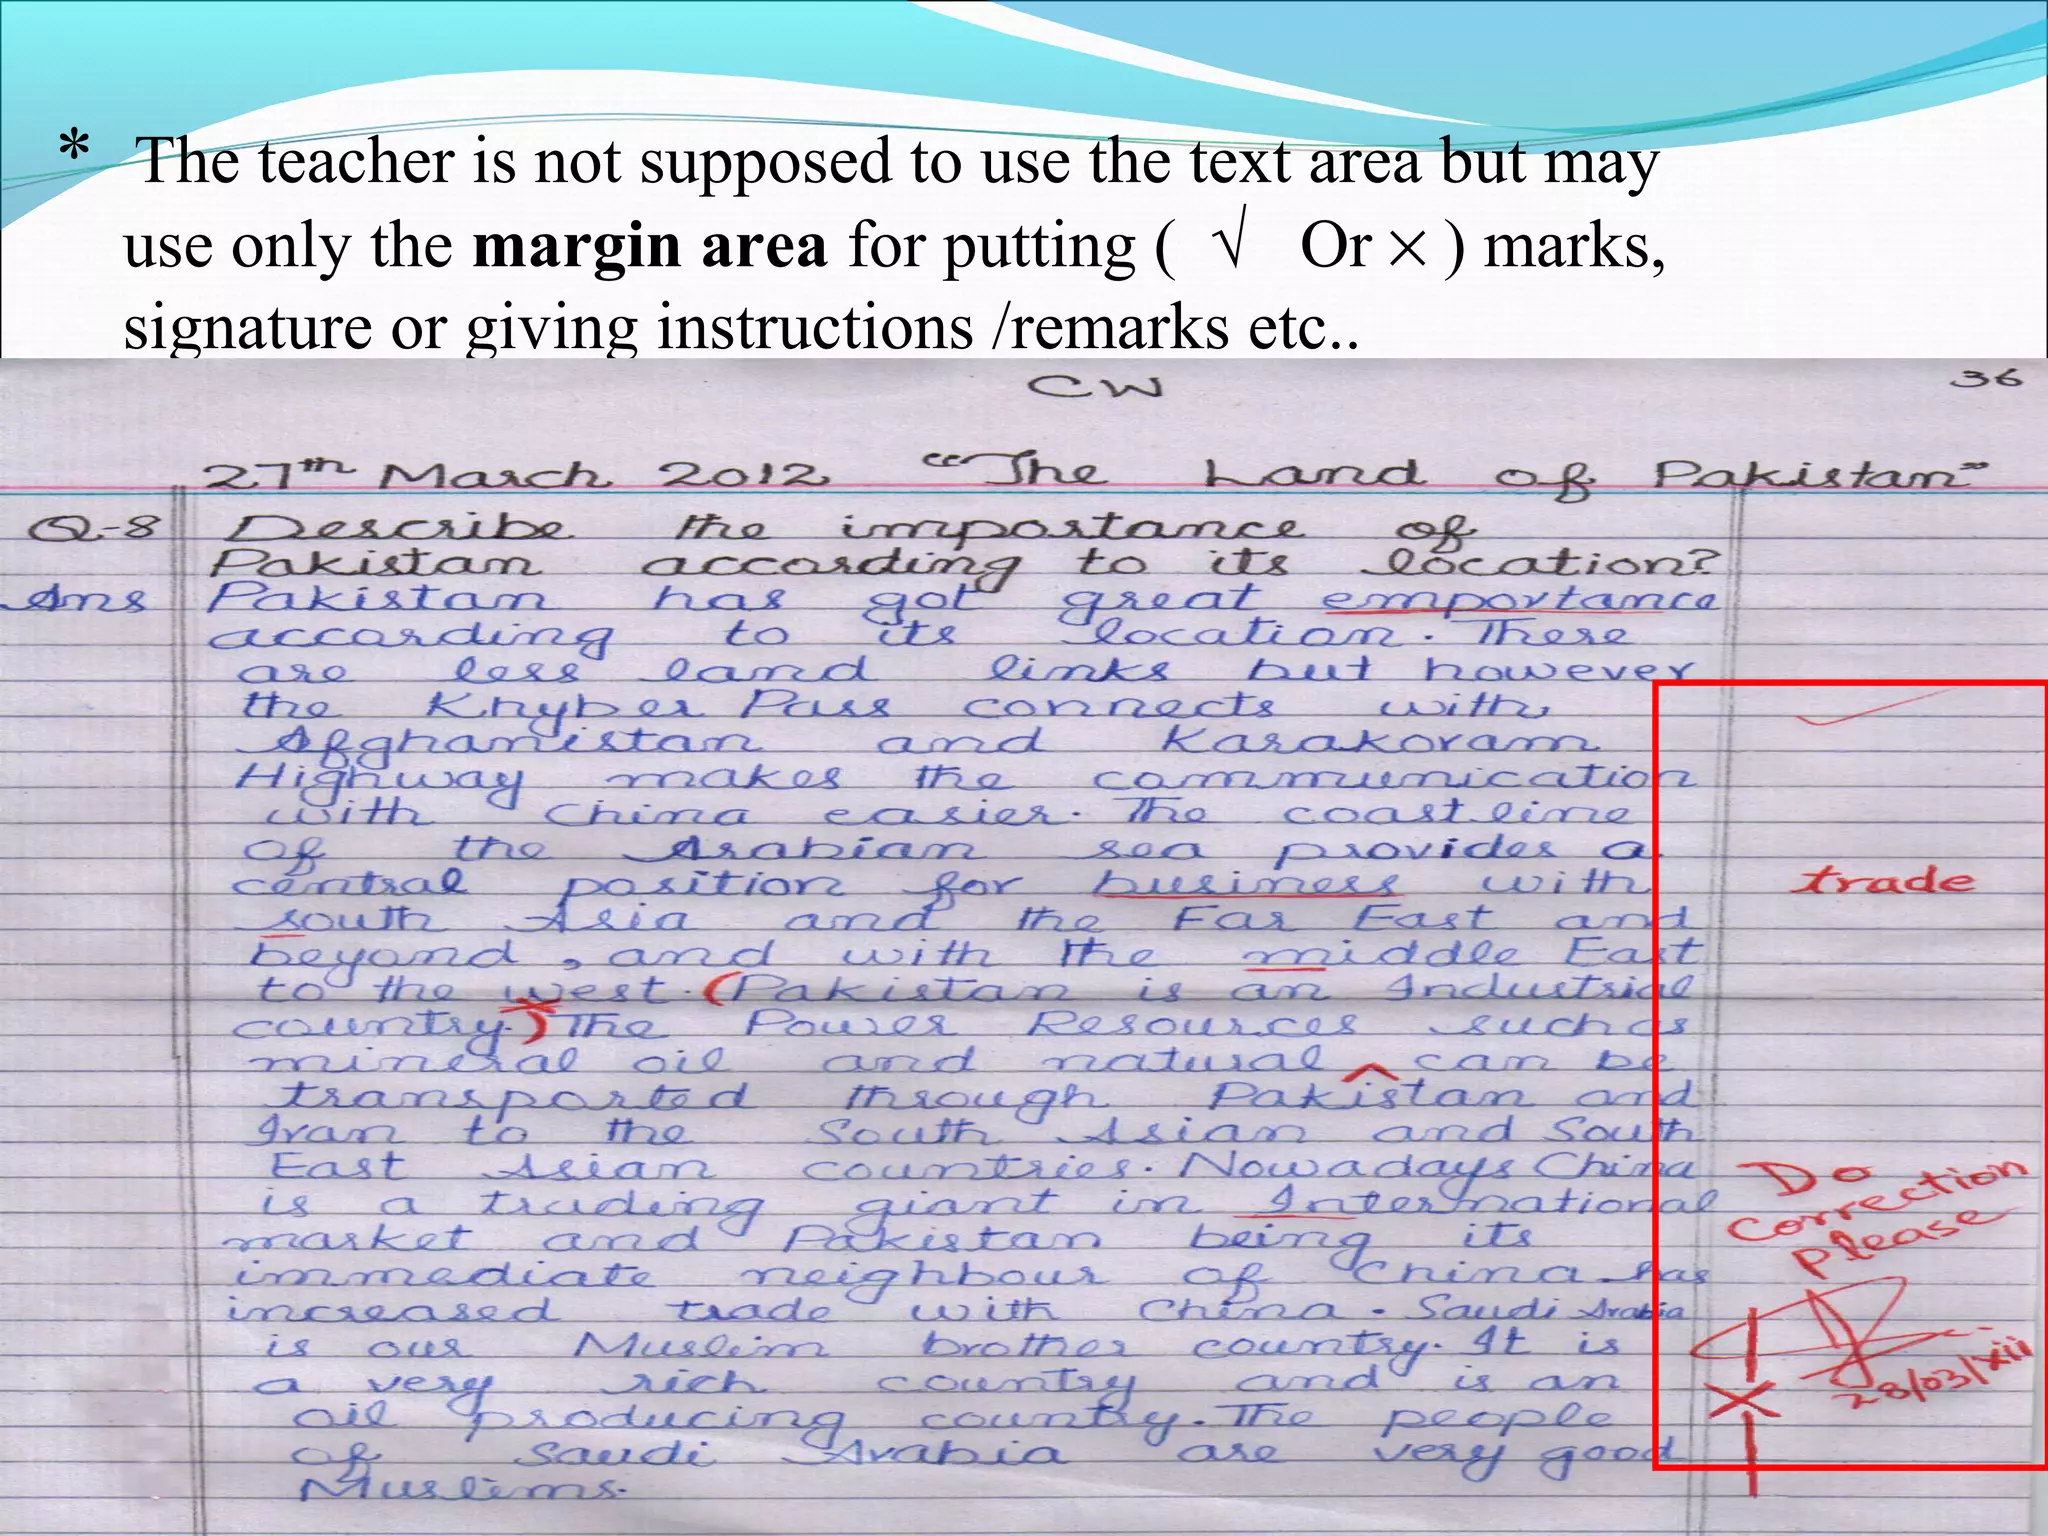 * The teacher is not supposed to use the text area but may
use only the margin area for putting ( √ Or × ) marks,
signature or giving instructions /remarks etc..
CW 36
27th March 2012 "The Land of Pakistan"
Q-8 Describe the importance of
Pakistan according to its location?
Ans Pakistan has got great emportance
according to its location. There
are less land links but however
the Khyber Pass connects with
Afghanistan and Karakoram
Highway makes the communication
with China easier. The coastline
of the Arabian sea provides a
central position for business with trade
south Asia and the Far East and
beyond, and with the middle East
to the west. (Pakistan is an Industrial
country.) The Power Resources such as
mineral oil and natural ^ can be
transported through Pakistan and
Iran to the South Asian and South
East Asian countries. Nowadays China
is a trading giant in International
market and Pakistan being its
immediate neighbour of China has
increased trade with China. Saudi Arabia
is our Muslim brother country. It is
a very rich country and is an
oil producing country. The people
of Saudi Arabia are very good
Muslims.
Do
correction
please
28/03/xii